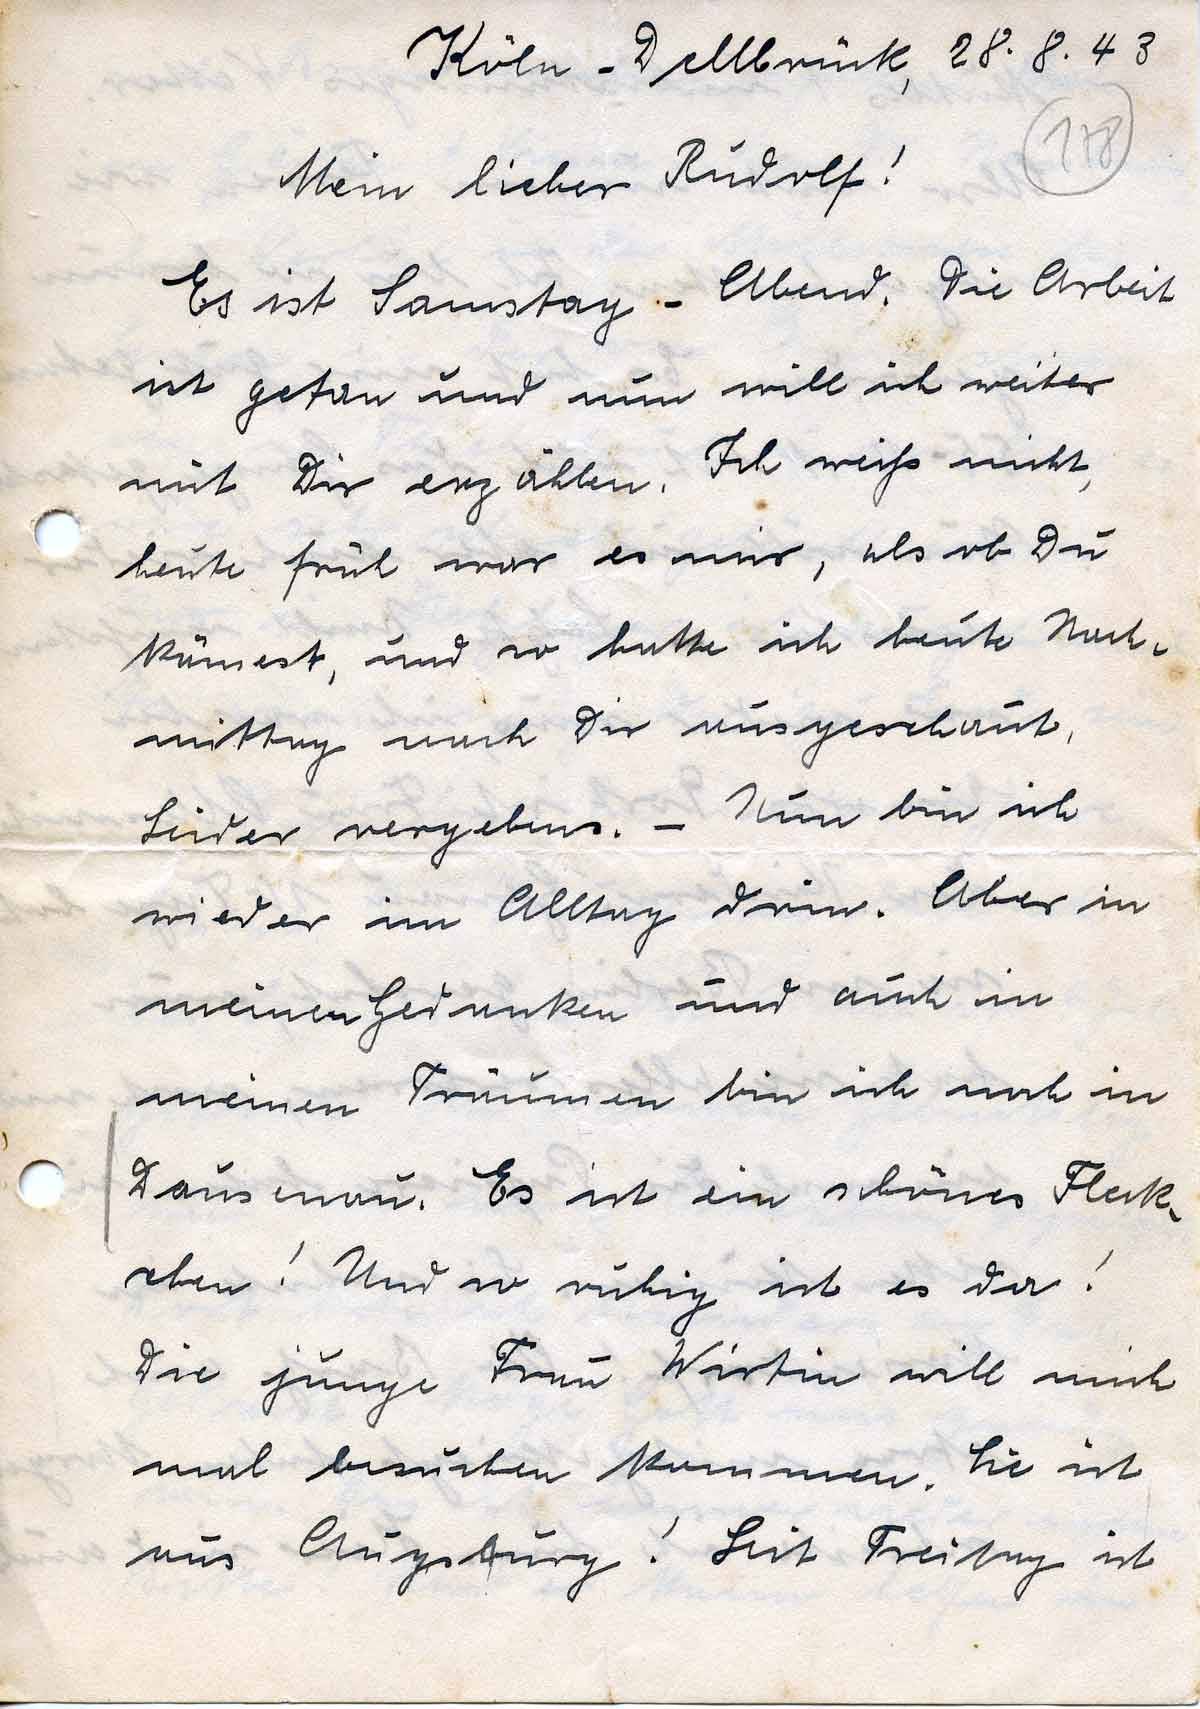 Köln - Dellbrück, 28. 8. 43
118
Mein lieber Rudolf!
Es ist Samstag - Abend. Die Arbeit
ist getan und nun will ich weiter
mit Dir erzählen. Ich weiss nicht,
heute früh war es mir, als ob Du
kämest, und so hatte ich heute Nach-
mittag nach Dir ausgeschaut,
leider vergebens. - Nun bin ich
wieder im Alltag drin. Aber in
meinen Gedanken und auch in
meinen Träumen bin ich noch in
Dausenau. Es ist ein schönes Fleck-
chen! Und so ruhig ist es da!
Die junge Frau Wirtin will mich
mal besuchen kommen. Sie ist
aus Augsburg! Seit Freitag ist